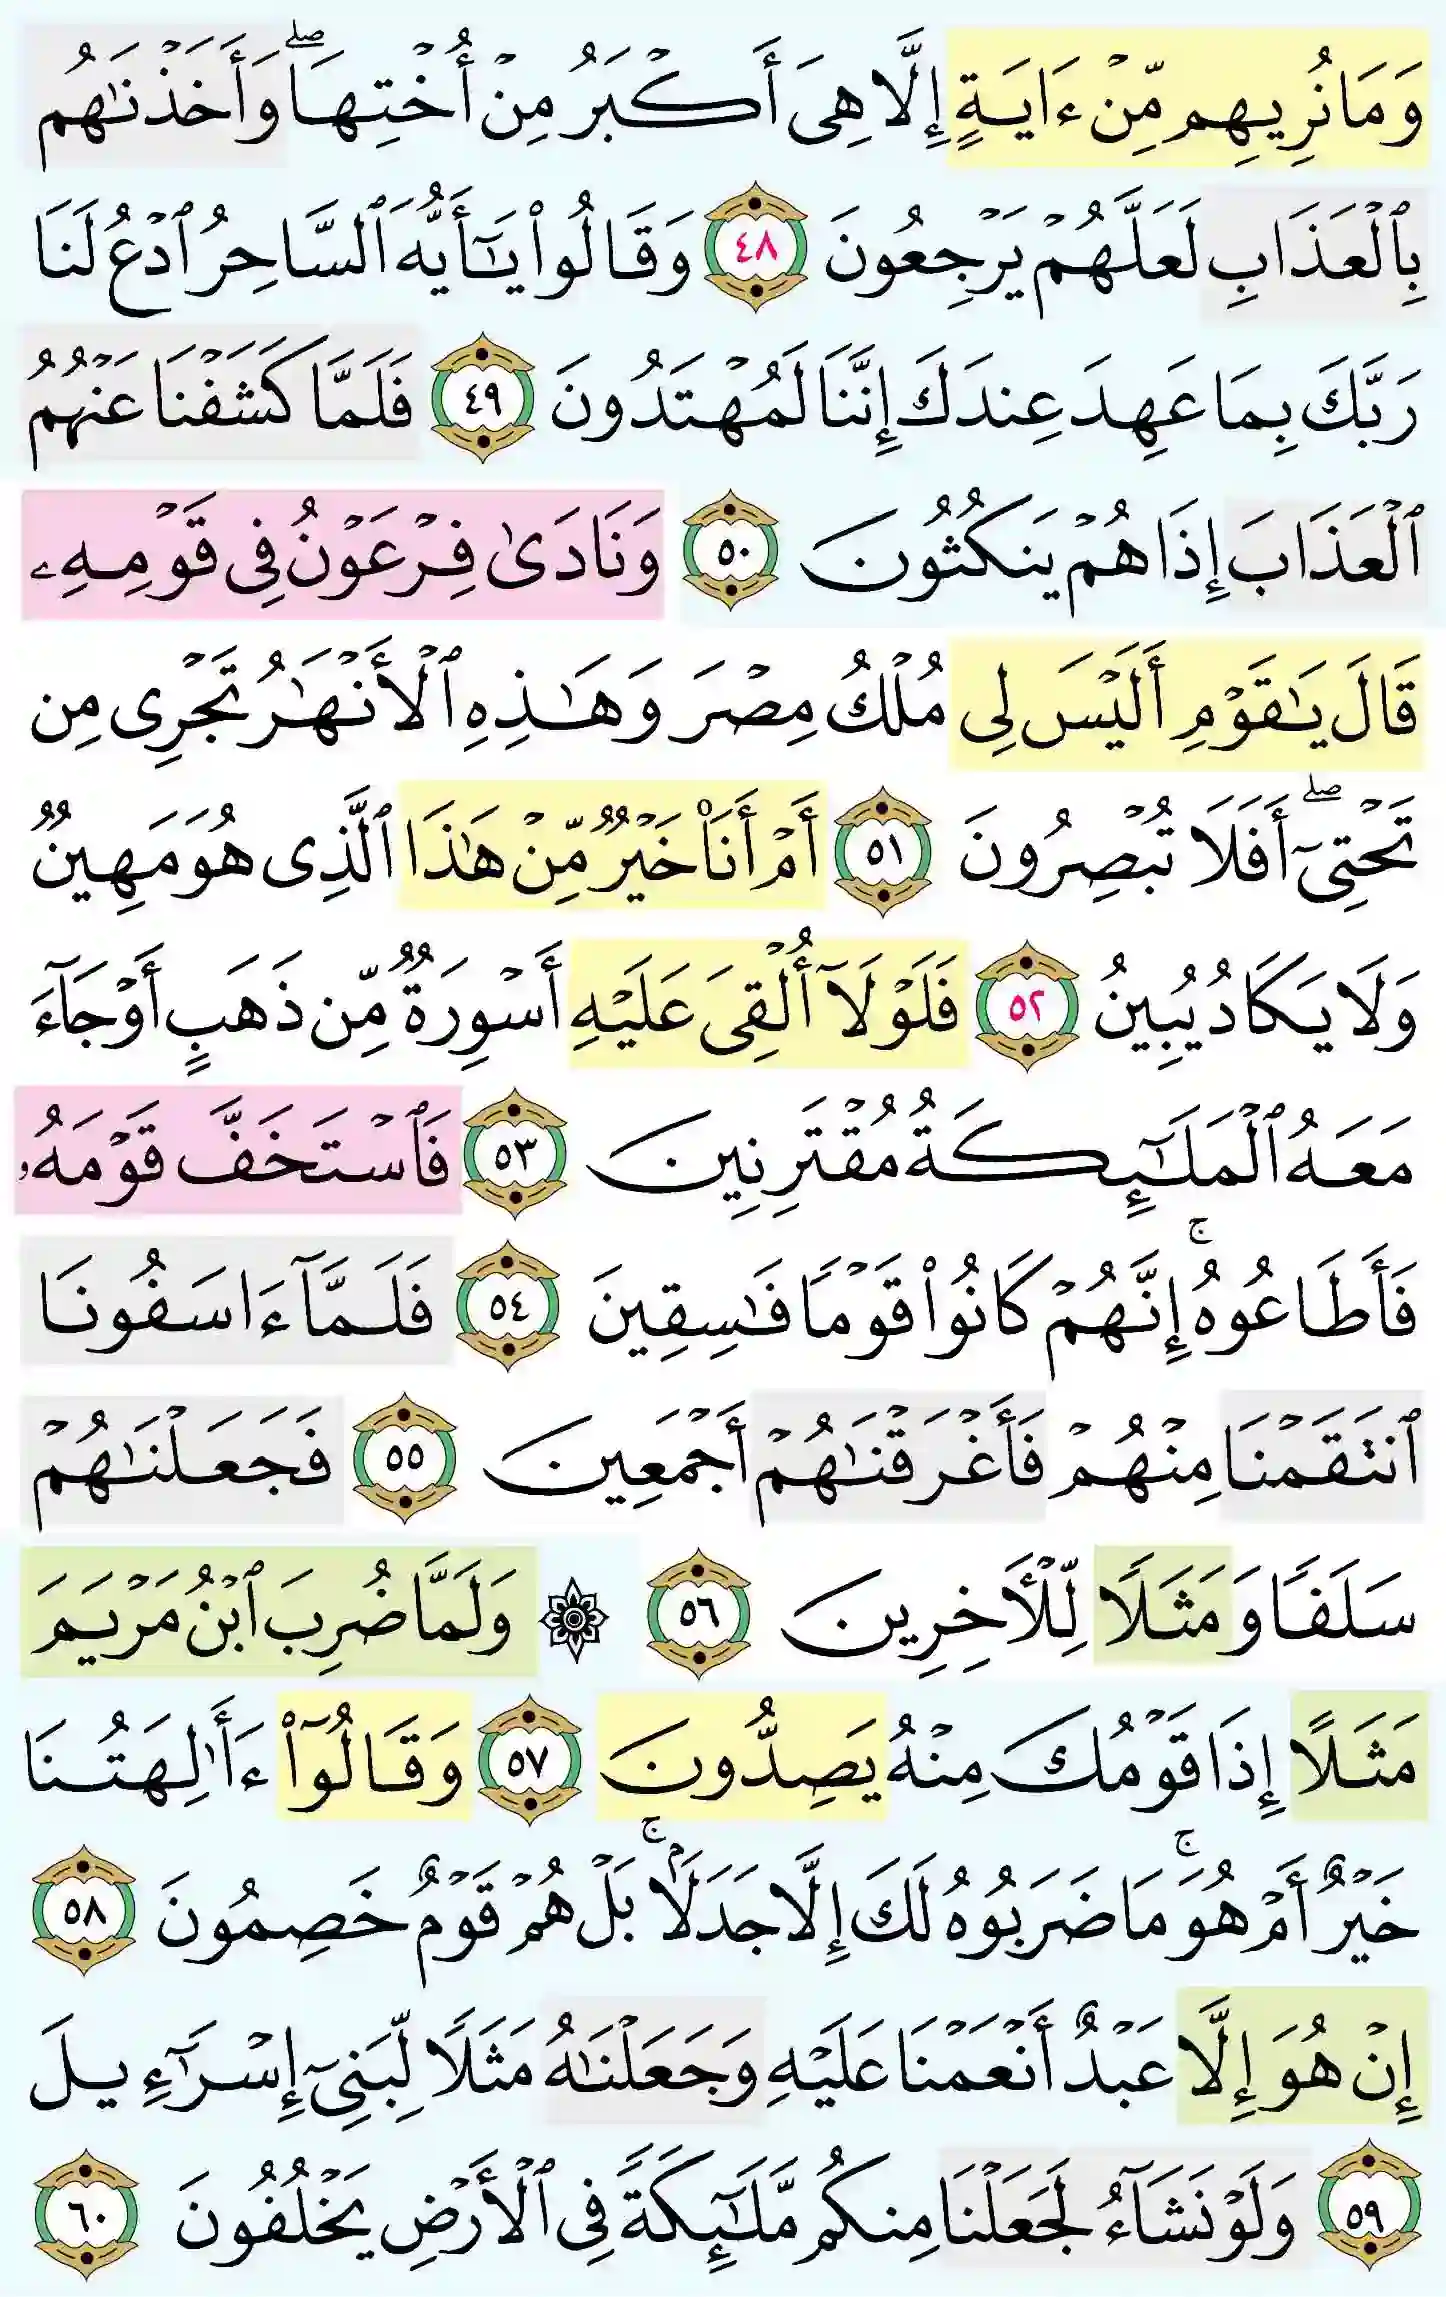 وَمَا نُرِيهِم مِّنْ ءَايَةٍ إِلَّا هِىَ أَكْبَرُ مِنْ أُخْتِهَا ۖ وَأَخَذْنَـٰهُم
بِٱلْعَذَابِ لَعَلَّهُمْ يَرْجِعُونَ ٤٨ وَقَالُوا۟ يَـٰٓأَيُّهَ ٱلسَّاحِرُ ٱدْعُ لَنَا
رَبَّكَ بِمَا عَهِدَ عِندَكَ إِنَّنَا لَمُهْتَدُونَ ٤٩ فَلَمَّا كَشَفْنَا عَنْهُمُ
ٱلْعَذَابَ إِذَا هُمْ يَنكُثُونَ ٥٠ وَنَادَىٰ فِرْعَوْنُ فِى قَوْمِهِۦ
قَالَ يَـٰقَوْمِ أَلَيْسَ لِى مُلْكُ مِصْرَ وَهَـٰذِهِ ٱلْأَنْهَـٰرُ تَجْرِى مِن
تَحْتِىٓ ۖ أَفَلَا تُبْصِرُونَ ٥١ أَمْ أَنَا۠ خَيْرٌ مِّنْ هَـٰذَا ٱلَّذِى هُوَ مَهِينٌ
وَلَا يَكَادُ يُبِينُ ٥٢ فَلَوْلَآ أُلْقِىَ عَلَيْهِ أَسْوِرَةٌ مِّن ذَهَبٍ أَوْ جَآءَ
مَعَهُ ٱلْمَلَـٰٓئِكَةُ مُقْتَرِنِينَ ٥٣ فَٱسْتَخَفَّ قَوْمَهُۥ
فَأَطَاعُوهُ ۚ إِنَّهُمْ كَانُوا۟ قَوْمًا فَـٰسِقِينَ ٥٤ فَلَمَّآ ءَاسَفُونَا
ٱنتَقَمْنَا مِنْهُمْ فَأَغْرَقْنَـٰهُمْ أَجْمَعِينَ ٥٥ فَجَعَلْنَـٰهُمْ
سَلَفًا وَمَثَلًا لِّلْـَٔاخِرِينَ ٥٦ ۞ وَلَمَّا ضُرِبَ ٱبْنُ مَرْيَمَ
مَثَلًا إِذَا قَوْمُكَ مِنْهُ يَصِدُّونَ ٥٧ وَقَالُوٓا۟ ءَأَـٰلِهَتُنَا
خَيْرٌ أَمْ هُوَ ۚ مَا ضَرَبُوهُ لَكَ إِلَّا جَدَلًۢا ۚ بَلْ هُمْ قَوْمٌ خَصِمُونَ ٥٨
إِنْ هُوَ إِلَّا عَبْدٌ أَنْعَمْنَا عَلَيْهِ وَجَعَلْنَـٰهُ مَثَلًا لِّبَنِىٓ إِسْرَٰٓءِيلَ
٥٩ وَلَوْ نَشَآءُ لَجَعَلْنَا مِنكُم مَّلَـٰٓئِكَةً فِى ٱلْأَرْضِ يَخْلُفُونَ ٦٠